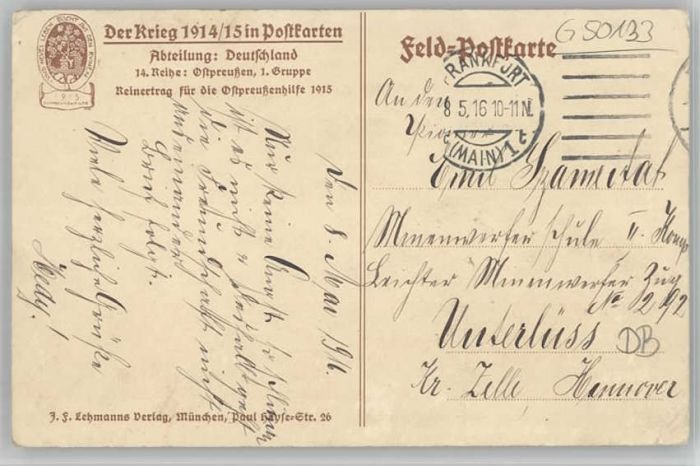 Der Krieg 1914/15 in Postkarten
Abteilung: Deutschland
14. Reihe: Ostpreußen, 1. Gruppe
Reinertrag für die Ostpreußenhilfe 1915
Feld-Postkarte
G 50133
FRANKFURT
8.5.16 10-11 N.
(MAIN) 1
An den
Pionier
Emil
Minenwerfer Schule II. Komp
Leichter Minenwerfer Zug
No 292
Unterlüss
DB
Kr. Zelle, Hannover
Den 8. Mai 1916.
Nur keine Angst so schlimm
ist es nicht
die Freundschaft nicht
auseinander
Brief folgt.
Viele herzliche Grüße
Hedy!
J. F. Lehmanns Verlag, München, Paul Heyse-Str. 26